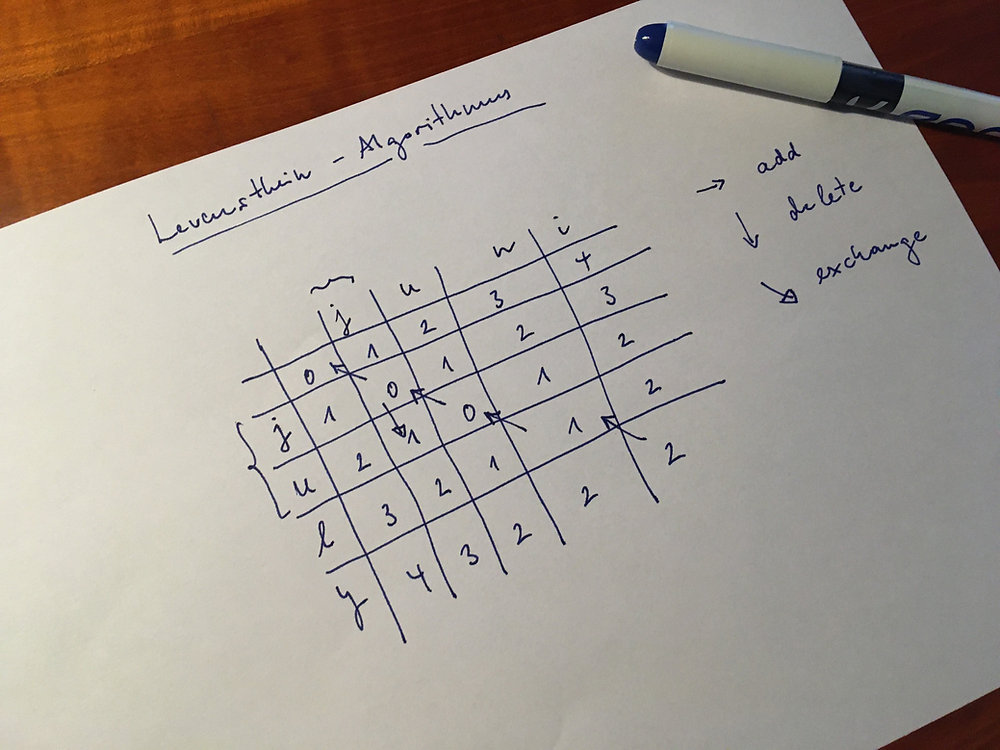 Levensthein - Algorithmus
→ add
↓ delete
↘ exchange
j u n i
0 1 2 3 4
j 1 0 1 2 3
u 2 1 0 1 2
l 3 2 1 1 2
y 4 3 2 2 2